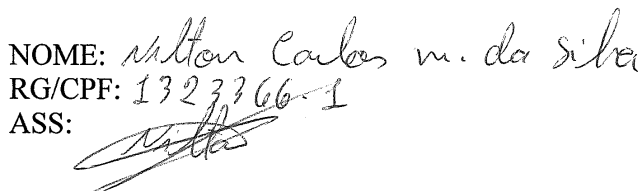 NOME: Nilton Carlos m. da Silva
RG/CPF: 1323366-1
ASS: Nilton